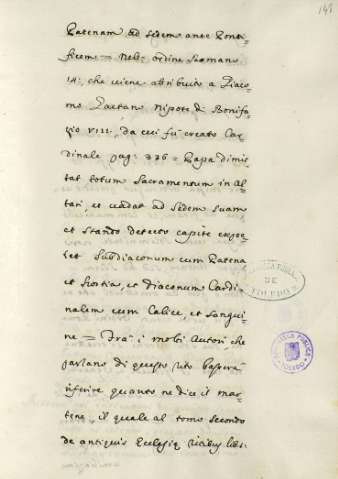 141
Patenam ad sedem ante Ponti-
ficem = Nell' ordine Romano
14: che viene attribuito a Giaco-
mo Gaetano Nipote di Bonifa-
zio VIII, da cui fù creato Car-
dinale pag: 336 = Papa dimit-
tat totum Sacramentum in Al-
tari, et vadat ad sedem suam
et stando detecto capite expec-
tet subdiaconum cum Patena
et Hostia, et diaconum Cardi-
nalem cum Calice, et sangui-
ne = Frà i molti Autori, che
parlano di questo rito basterà
riferire quanto ne dice il Mar-
tene, il quale al tomo secondo
de antiquis Ecclesię ritibus lib:
DE
TOLEDO
TOLEDO